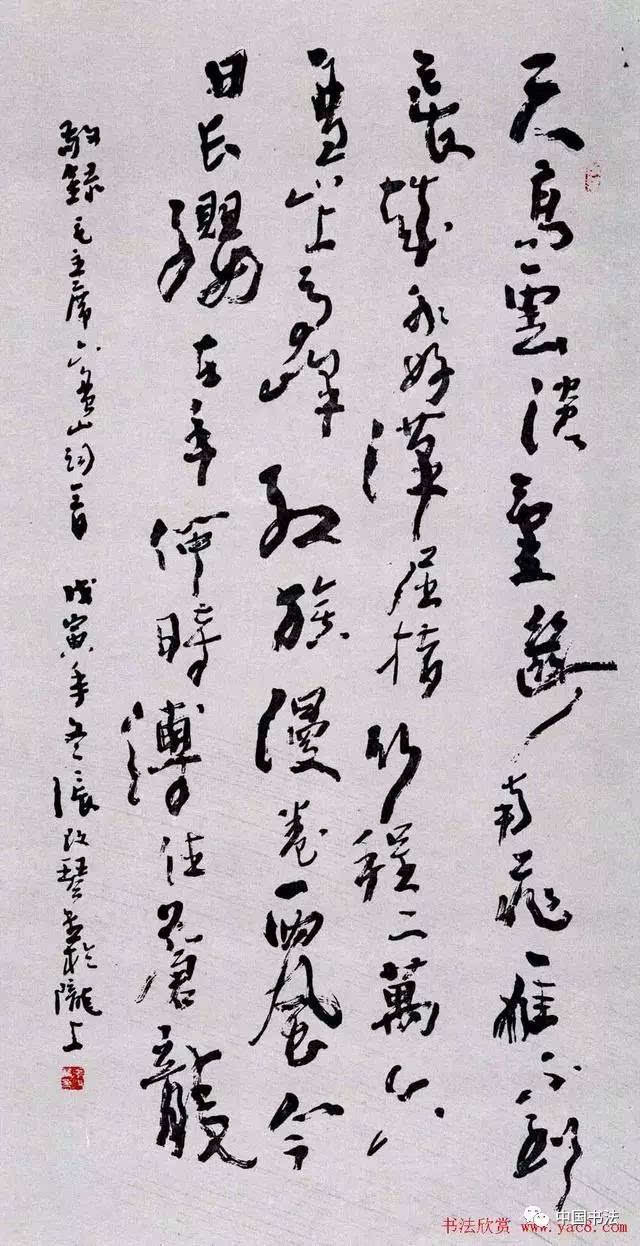 天高雲淡望斷南飛雁不到
長城非好漢屈指行程二萬六
盤山上高峰紅旗漫卷西風今
日長纓在手何時縛住蒼龍
敬錄毛主席六盤山詞一首 戊寅年冬張改琴書於隴上
中国书法
书法欣赏 www.yac8.com